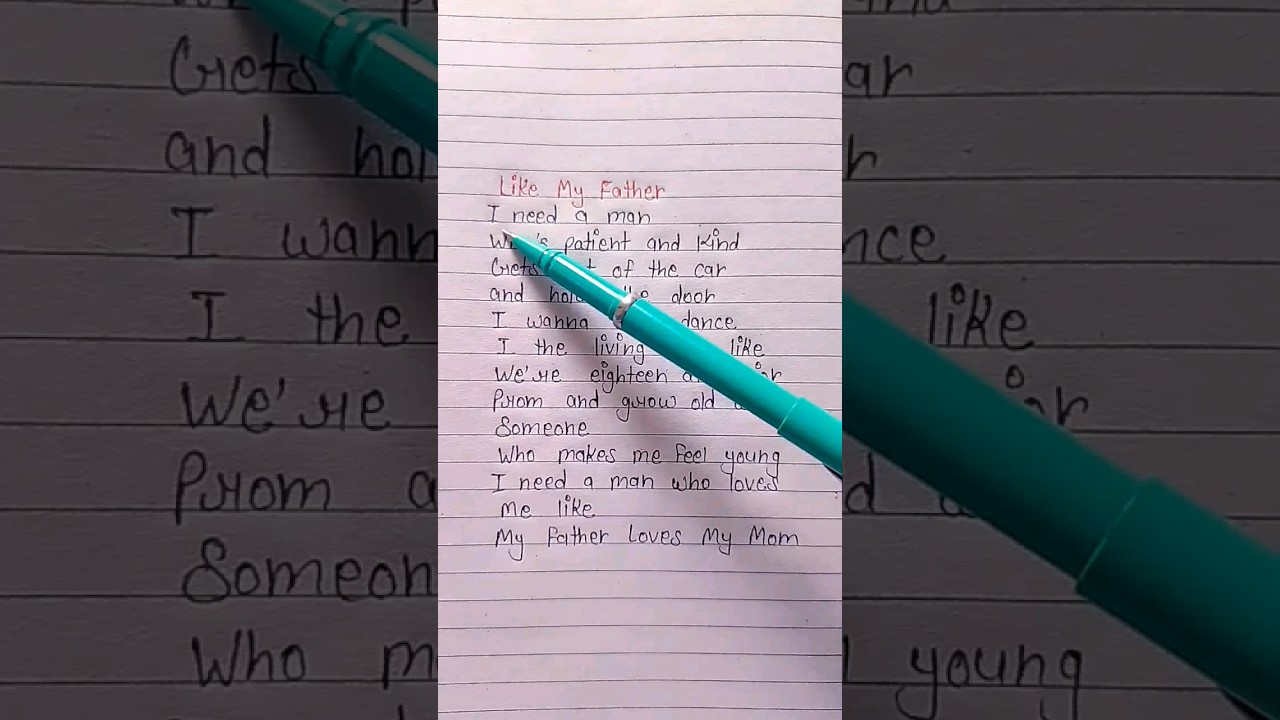 Like My Father
I need a man
patient and kind
of the car
and door
I wanna dance
I the living like
We're eighteen
Prom and grow old
Someone
Who makes me feel young
I need a man who loves
me like
My Father Loves My Mom